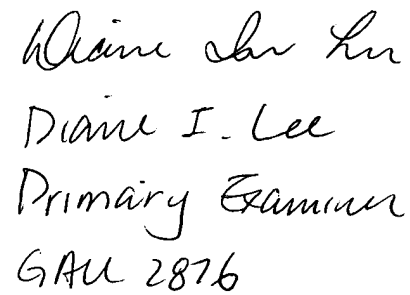 Diane I. Lee
Diane I. Lee
Primary Examiner
GAU 2876